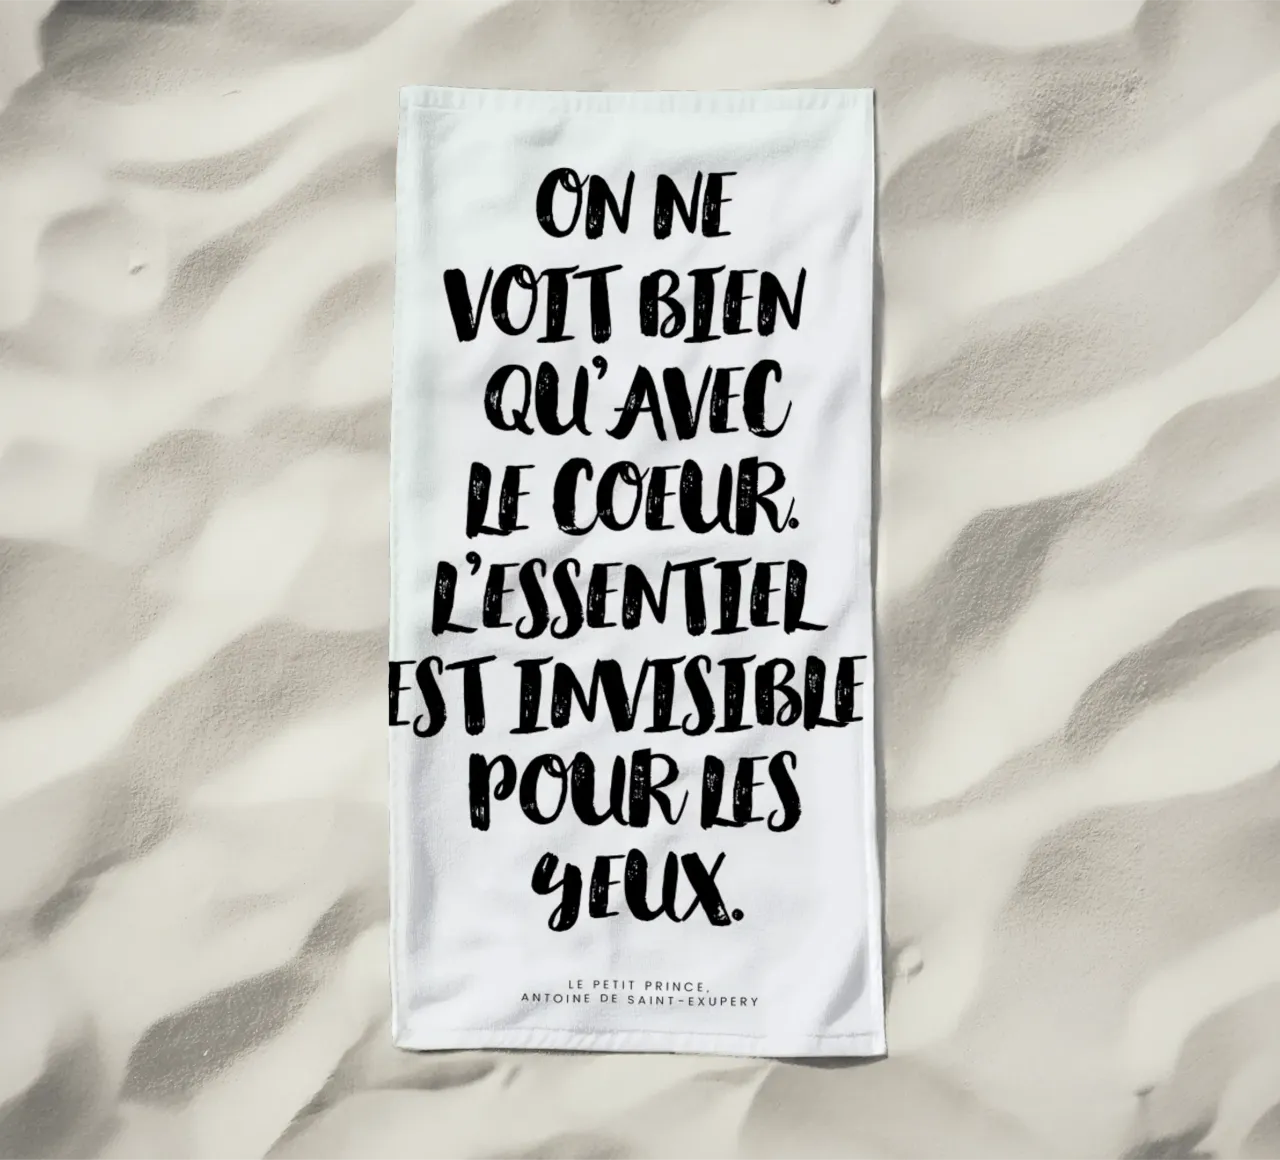 ON NE
VOIT BIEN
QU'AVEC
LE COEUR.
L'ESSENTIEL
EST INVISIBLE
POUR LES
YEUX.
LE PETIT PRINCE,
ANTOINE DE SAINT-EXUPERY